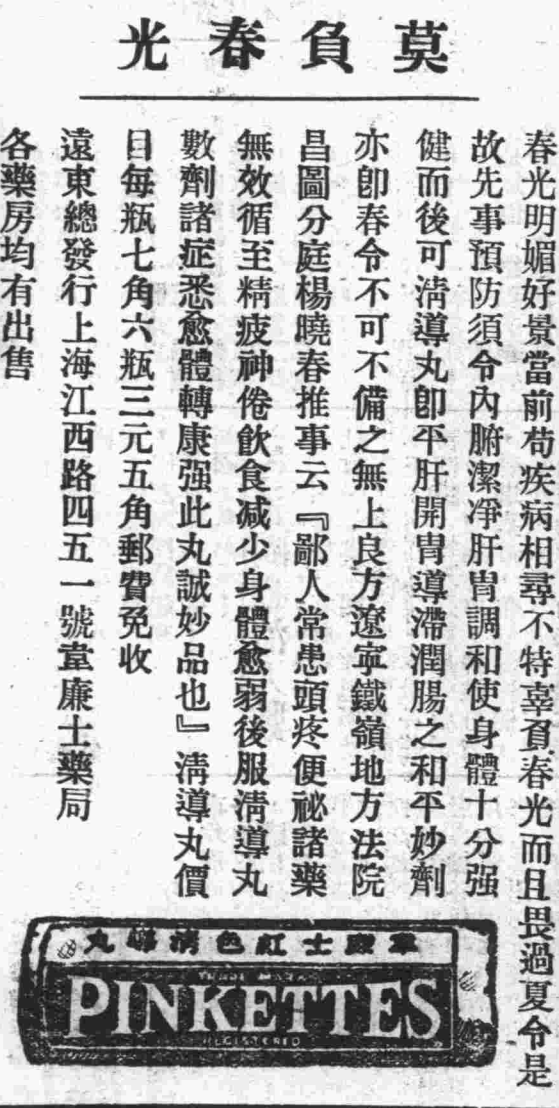 莫負春光
春光明媚好景當前苟疾病相尋不特辜負春光而且畏過夏令是
故先事預防須令內腑潔淨肝胃調和使身體十分强
健而後可淸導丸卽平肝開胃導滯潤腸之和平妙劑
亦卽春令不可不備之無上良方遼寧鐵嶺地方法院
昌圖分庭楊曉春推事云『鄙人常患頭疼便祕諸藥
無效循至精疲神倦飮食减少身體愈弱後服淸導丸
數劑諸症悉愈體轉康强此丸誠妙品也』淸導丸價
目每瓶七角六瓶三元五角郵費免收
遠東總發行上海江西路四五一號韋廉士藥局
各藥房均有出售
韋廉士紅色淸導丸
TRADE MARK
PINKETTES
REGISTERED